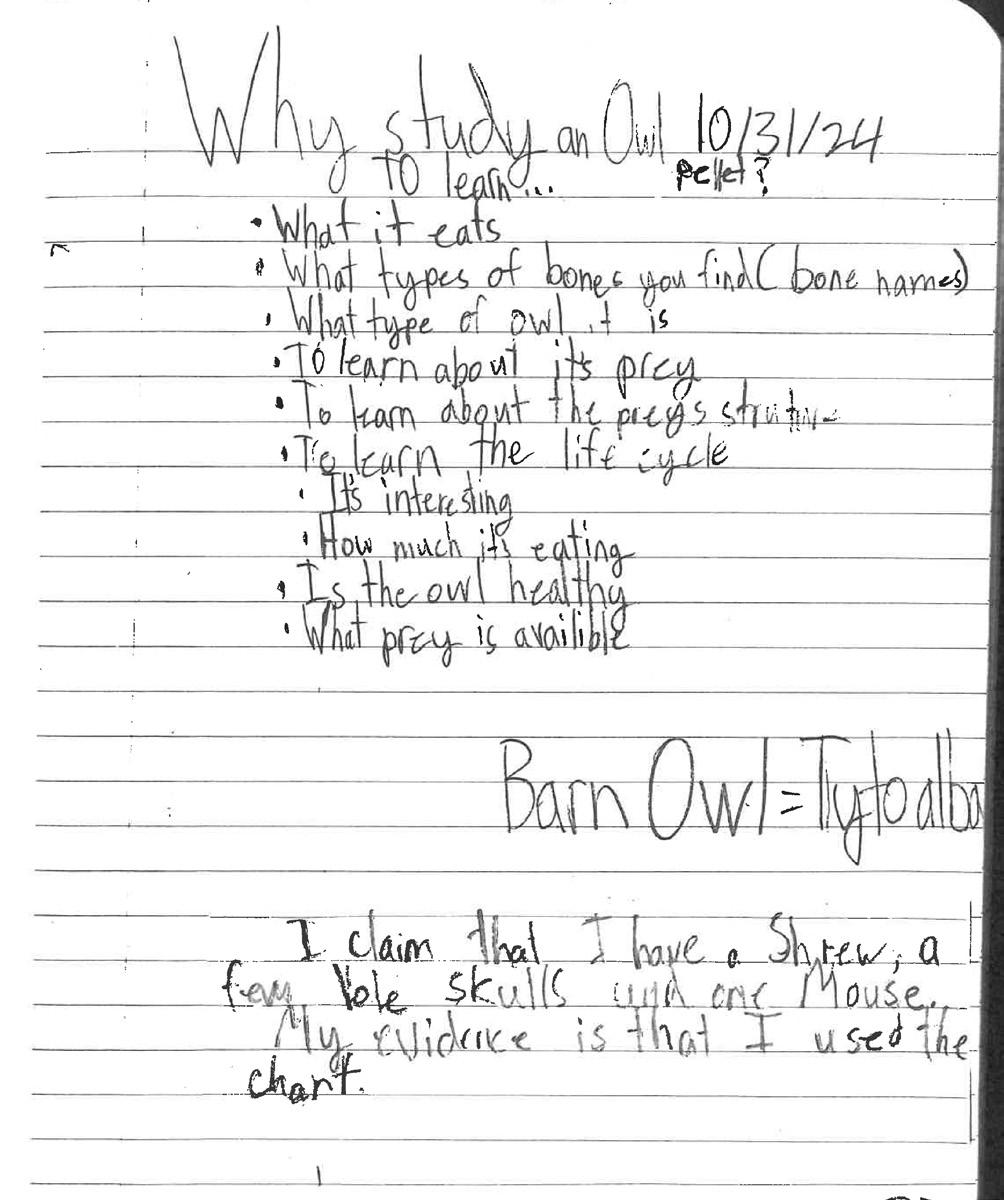 Why study an Owl 10/31/24
pellet?
To learn...
• What it eats
• What types of bones you find (bone names)
• What type of owl it is
• To learn about it's prey
• To learn about the preys
• To learn the life cycle
• It's interesting
• How much it's eating
• Is the owl healthy
• What prey is availible
Barn Owl = Tyto alba
I claim that I have a Shrew, a
few Vole skulls and one Mouse.
My evidence is that I used the
chart.